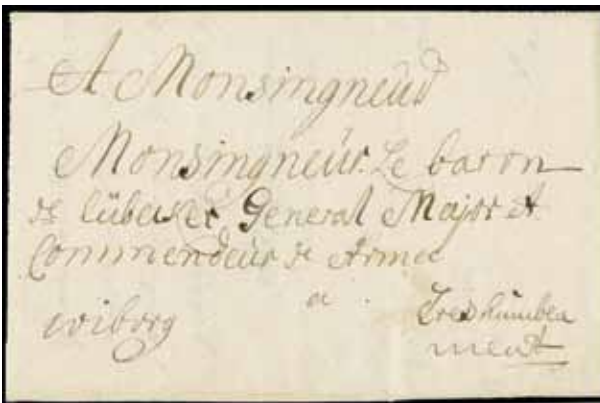 A Monsingneud
Monsingneur Le baron
de lübecker General Major et
Commendeur de Armee
a
wiborg
Tres humblea
ment